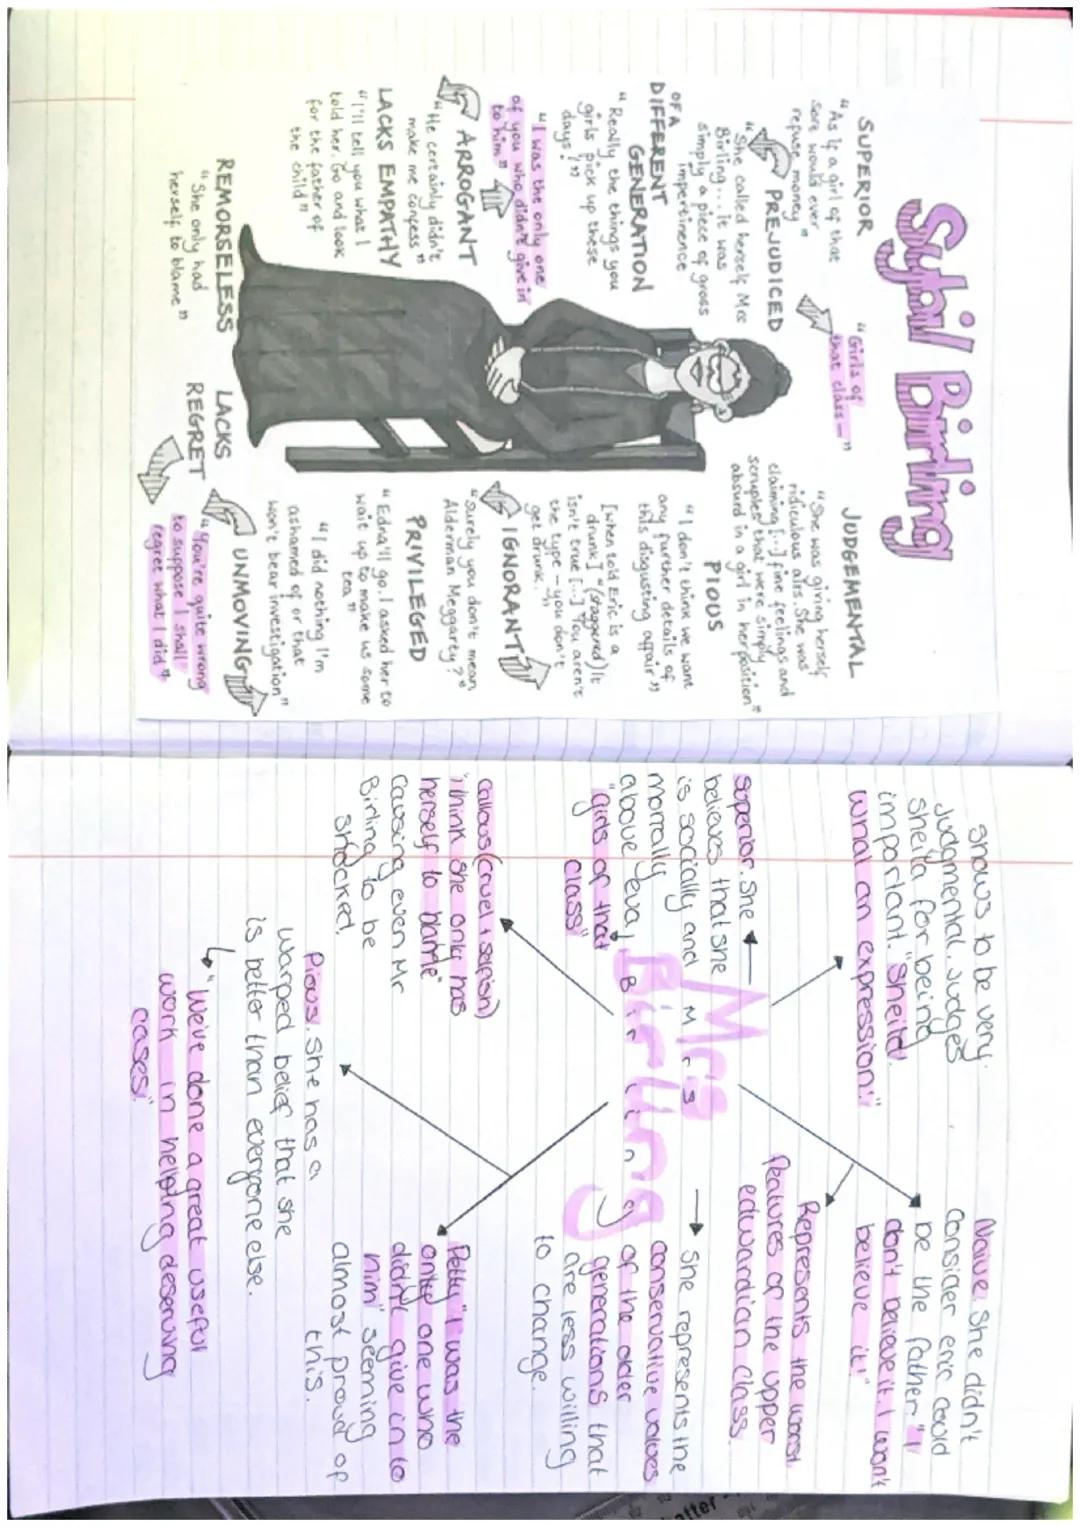 Sybil Birling
SUPERIOR
"As if a girl of that
sort would ever
refuse money"
"Girls of
that class—"
PREJUDICED
"She called herself Mrs
Birling... it was
simply a piece of gross
impertinence
OF A
DIFFERENT
GENERATION
"Really the things you
girls pick up these
days!"
"I was the only one
of you who didn't give in
to him"
ARROGANT
"He certainly didn't
make me confess"
LACKS EMPATHY
"I'll tell you what I
told her. Go and look
for the father of
the child"
REMORSELESS
"She only had
herself to blame"
JUDGEMENTAL
"She was giving herself
ridiculous airs. She was
claiming [...] fine feelings and
scruples that were simply
absurd in a girl in her position"
PIOUS
"I don't think we want
any further details of
this disgusting affair"
[when told Eric is a
drunk] "(staggered) It
isn't true [...] You aren't
the type – you don't
get drunk."
IGNORANT
"Surely you don't mean
Alderman Meggarty?"
PRIVILEGED
"Edna'll go. I asked her to
wait up to make us some
tea"
"I did nothing I'm
ashamed of or that
won't bear investigation"
UNMOVING
LACKS
REGRET
"You're quite wrong
to suppose I shall
regret what I did"
Mrs
Birling
Mrs
Birling
shows to be very
Judgmental. Judges
Sheila for being
important. "Sheila!
what an expression!"
superior. She
believes that she
is socially and
morally
above eva,
"girls of that
class"
callous (cruel + selfish)
"I think she only has
herself to blame"
Causing even Mr
Birling to be
shocked.
Pious. She has a
warped belief that she
is better than everyone else.
"We've done a great useful
work in helping deserving
cases."
Naive. She didn't
consider eric could
be the father. "I
don't believe it. I won't
believe it!"
Represents the worst
features of the upper
edwardian class.
She represents the
conservative values
of the older
generations that
are less willing
to change.
Petty "I was the
only one who
didn't give in to
him" seeming
almost proud of
this.